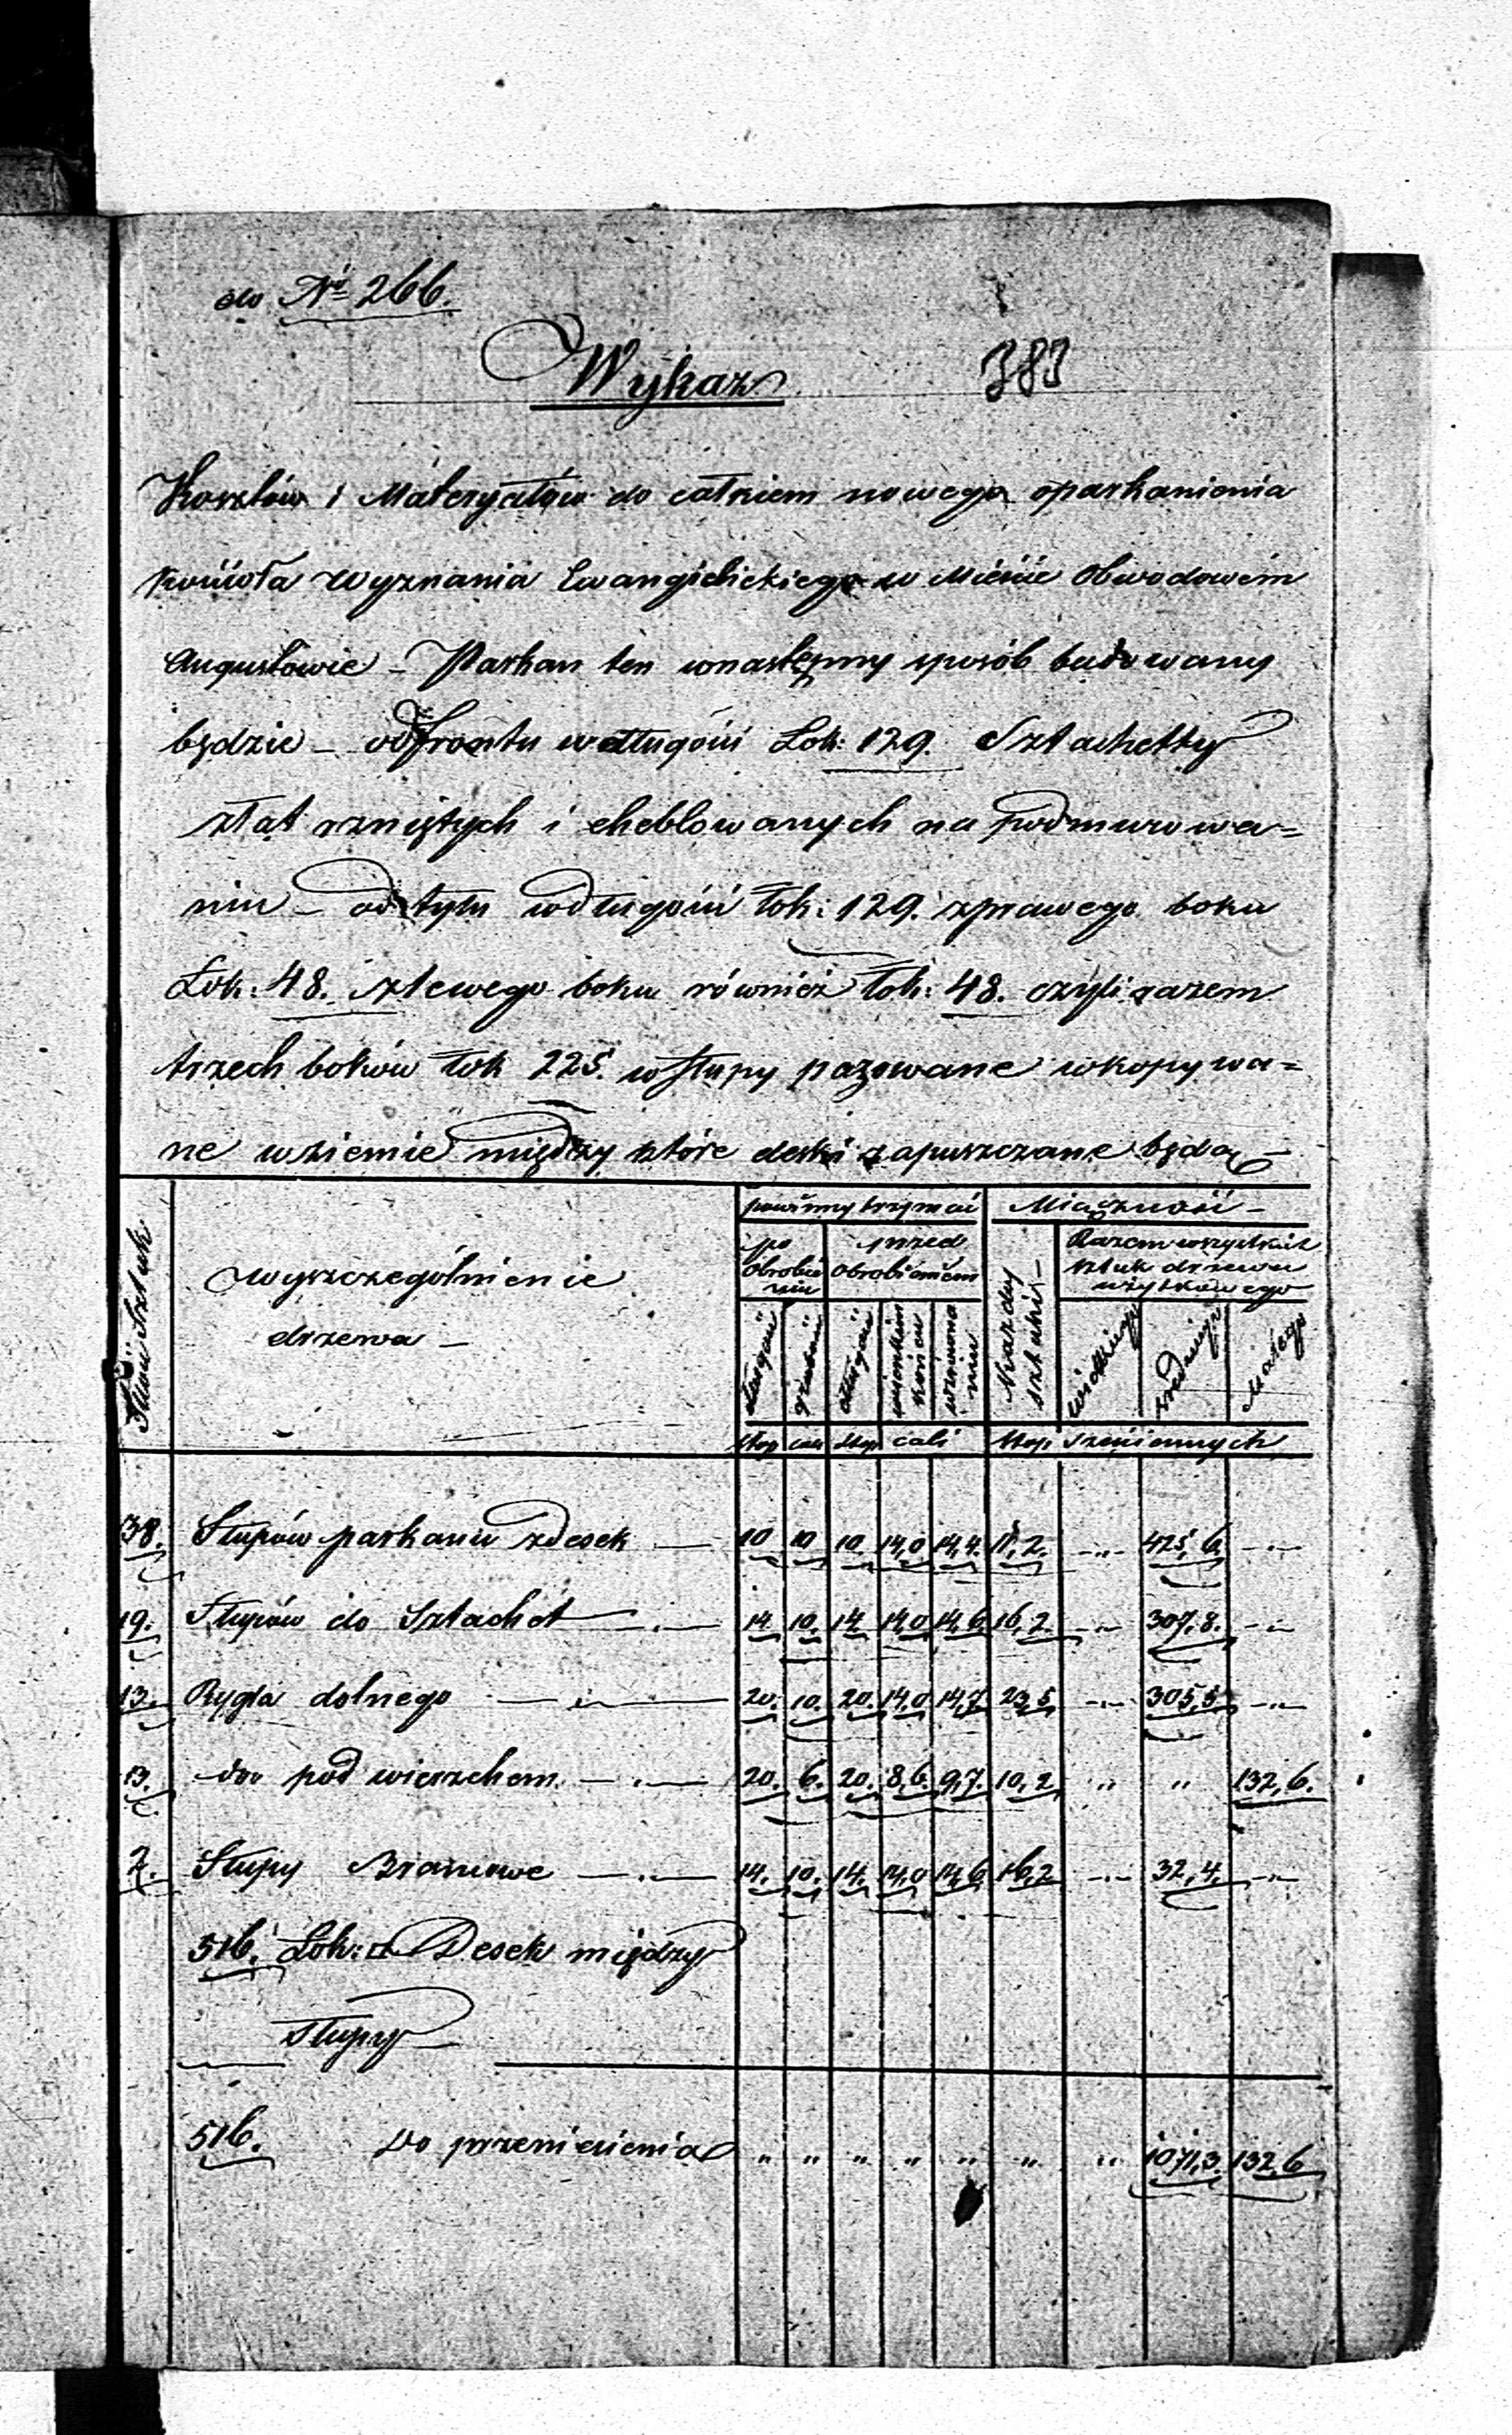 do No 266.
Wykaz 383
Kosztów i Materyałów do całkiem nowego oparkanienia
Kościoła wyznania Ewangielickiego w Mieście Obwodowém
Augustowie – Parkan ten wnastępny sposób budowany
będzie – od frontu wdługości Łok: 129. Sztachetty
złat rzniętych i cheblowanych na podmurowa=
niu – od tyłu wdługości łok: 129. zprawego boku
Łok: 48. zlewego boku również łok: 48. czyli razem
trzech boków łok 225. w słupy pazowane wkopywa=
ne wziemie między które deski zapuszczane będą –
powinny trzymać Miąszność –
Ilość Sztuk
wyszczególnienie
drzewa –
po obrobieniu
przed obrobieniem
Każdey sztuki –
Razem wszystkich
sztuk drzewa
użytkowego
długość grubość długość wcieńkim końcu
wielkiego średniego Małego
stop cali stop cali stop Sześciennych
38. Słupów parkanu zdesek — 10 10 10 14,0 14,4. 11,2. -„- 425,6 -„-
19. Słupów do Sztachet — 14 10. 14 14,0 14,6. 16,2. -„- 307,8. -„-
13. Rygla dolnego — 20. 10. 20. 14,0 14,7 23,5 -„- 305,5 -„-
13. -do- pod wierzchem — 20. 6. 20. 8,6. 9,7. 10,2 „ „ 132,6.
2. Słupy Bramowe — 14. 10. 14. 14,0 14,6 16,2 -„- 32,4. -„-
516. Łok: □ Desek między
słupy —
516. Do przeniesienia „ „ „ „ „ „ „ 1071,3. 132,6